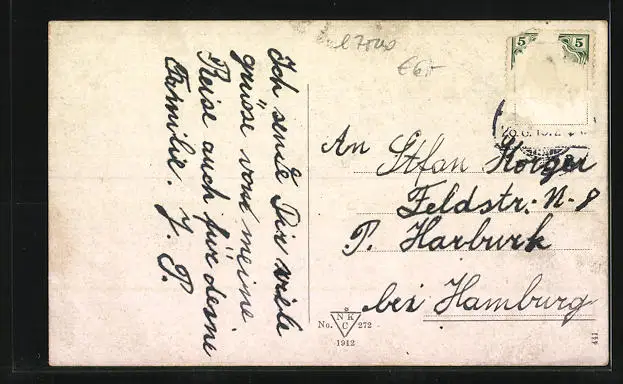 Ich sende Dir viele
grüsse vone meine
Reise auch für deine
Familie. J. P.
An Stfan Horger
Feldstr: N-8
P. Harburk
bei Hamburg
5 5
€6,-
No. N K C 272
1912
441